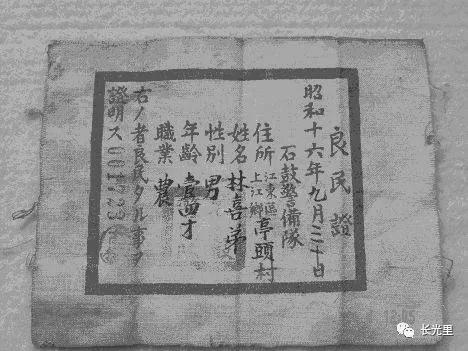 良民證
昭和十六年九月二十日
石鼓警備隊
住所 江東區上江鄉亭頭村
姓名 林喜弟
性別 男
年齡 壹四才
職業 農
右ノ者良民タル事ヲ
證明ス 001723
长光里